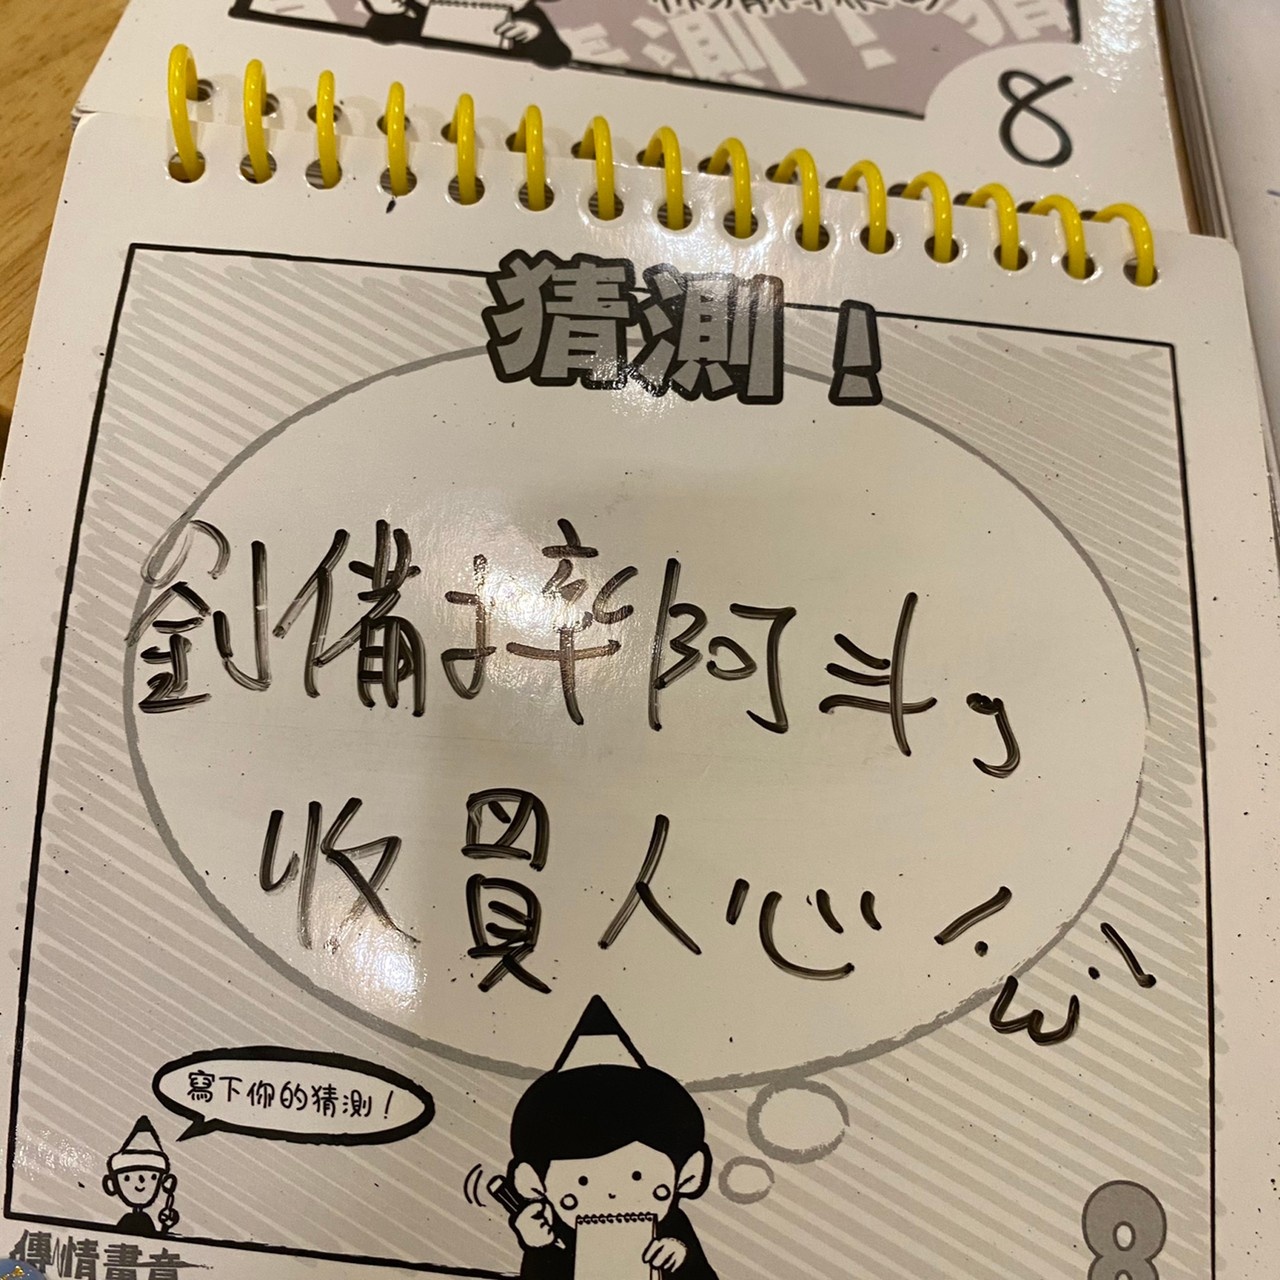 8
猜測！
劉備摔阿斗，
收買人心！
寫下你的猜測！
傳情畫意
8